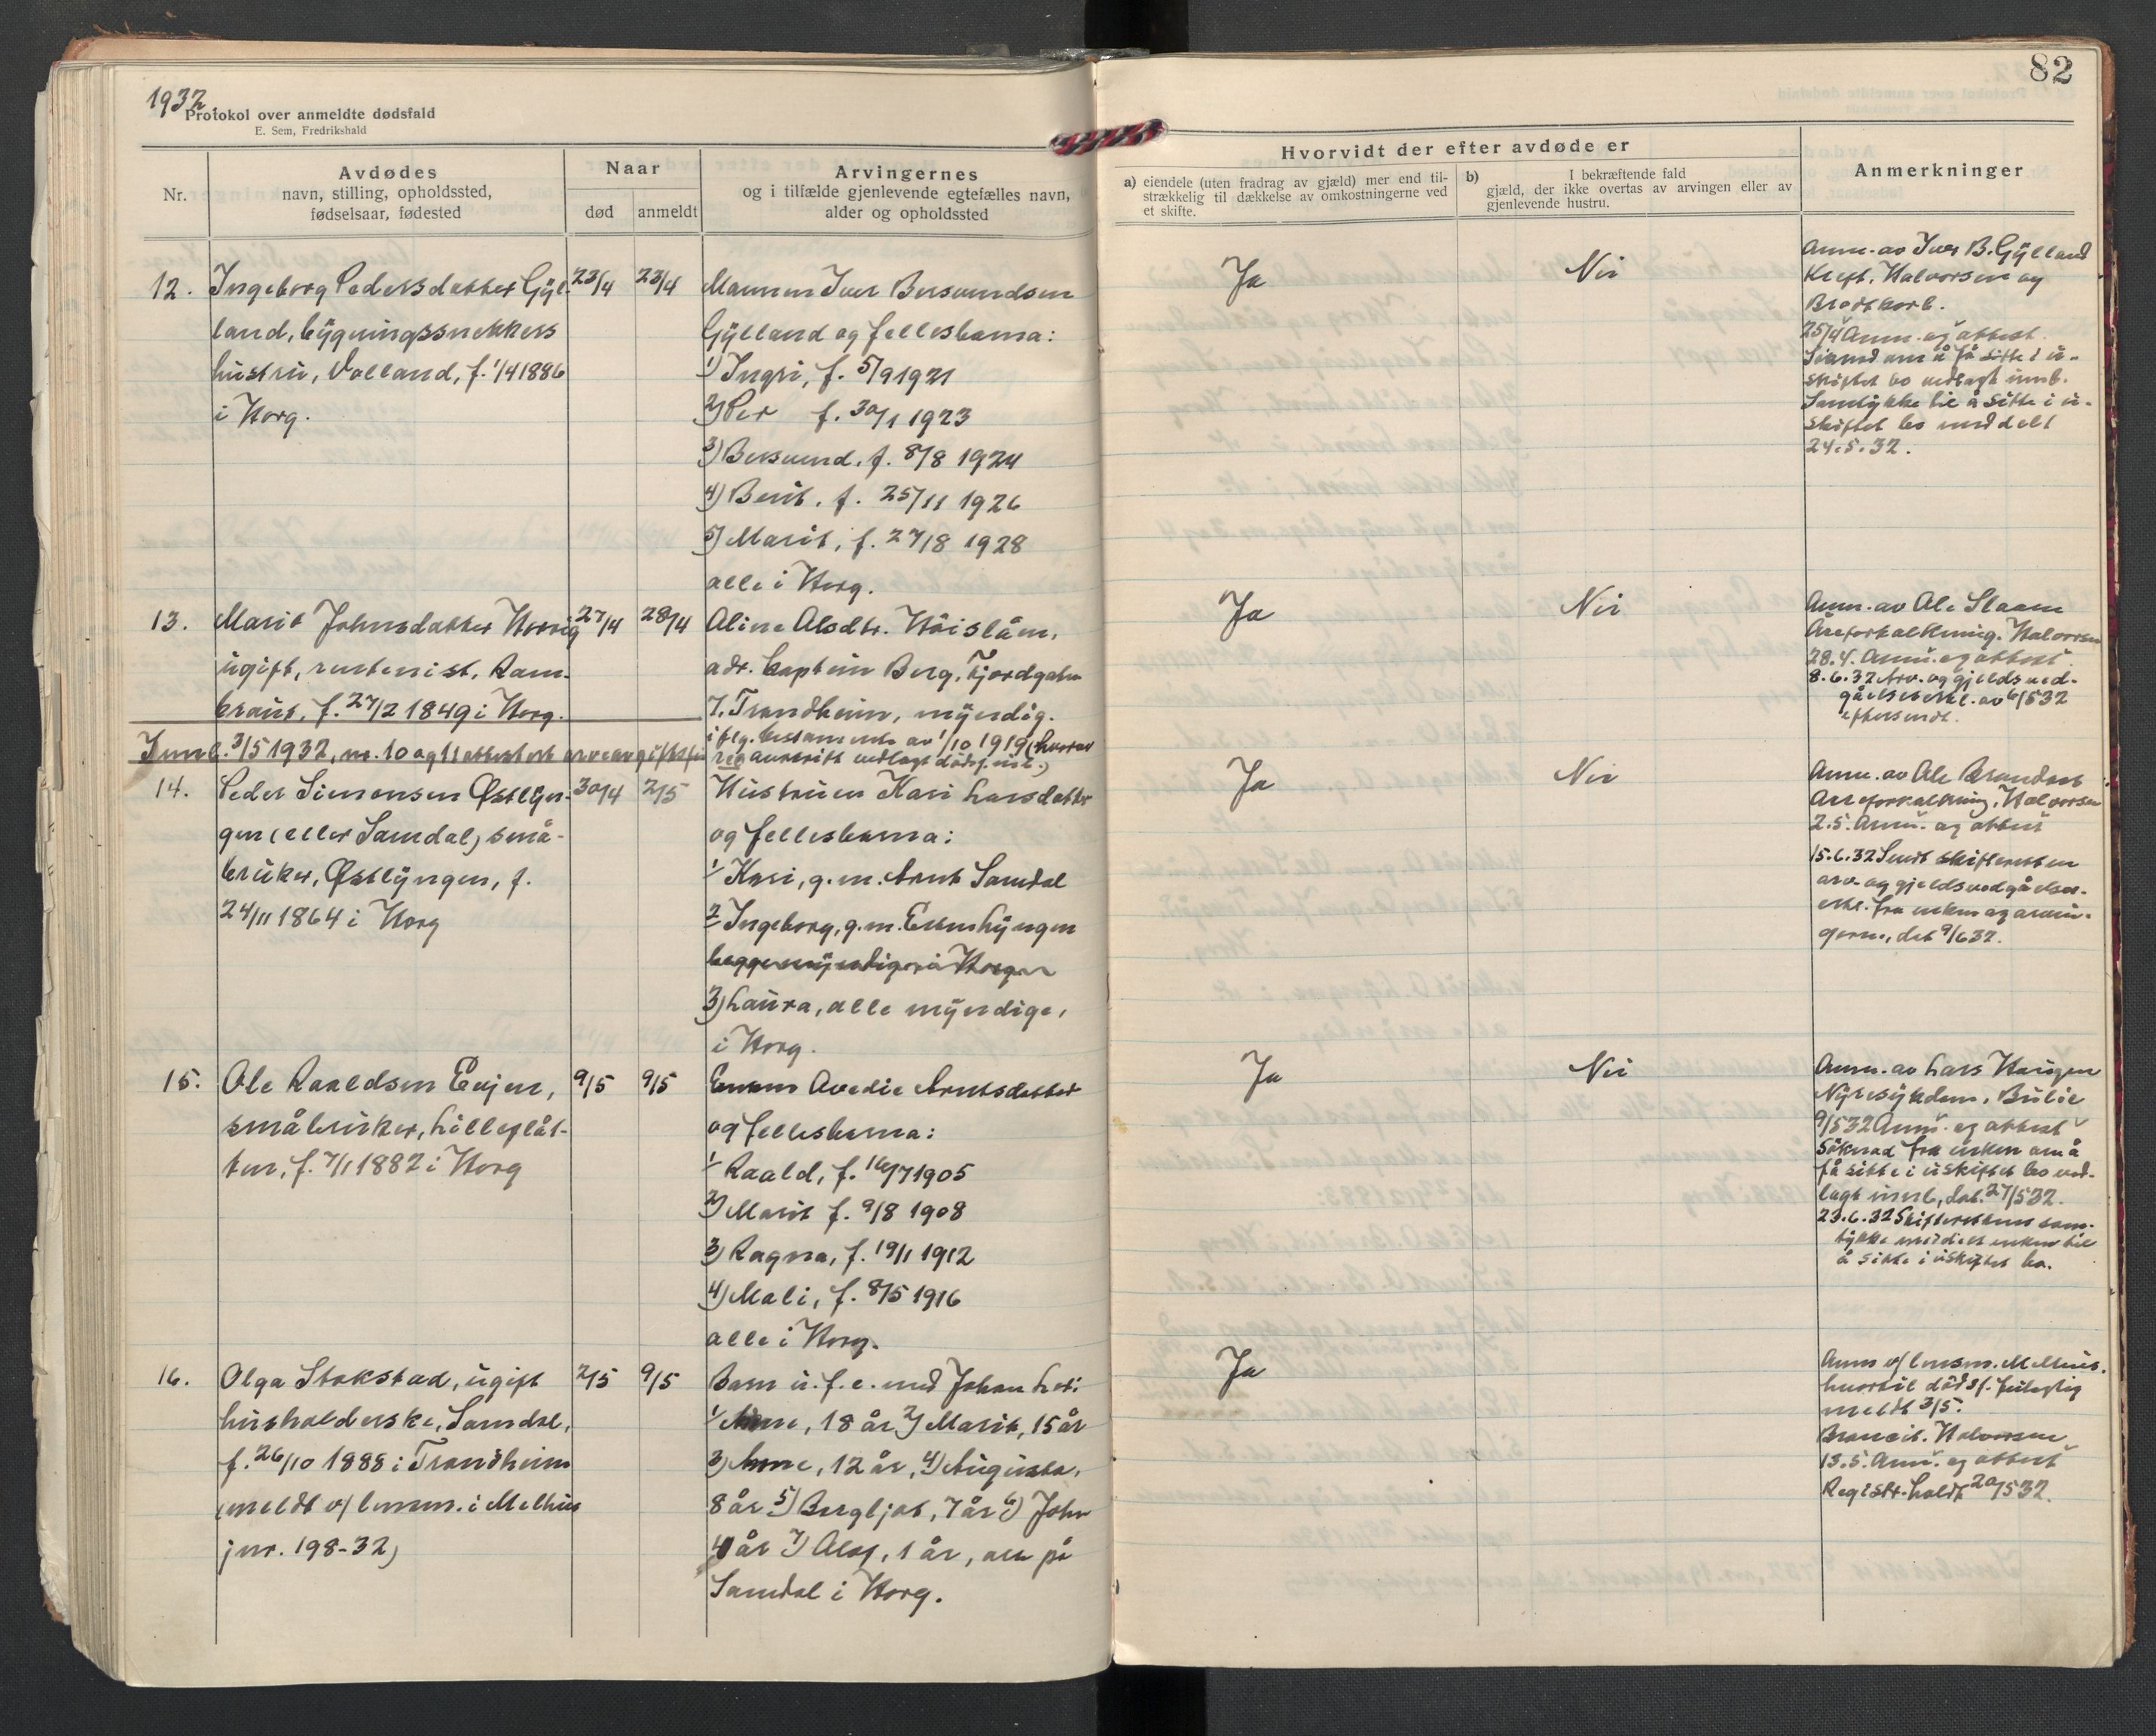 1932.
Protokol over anmeldte dødsfald
E. Sem, Fredrikshald
82
Nr.
Avdødes
navn, stilling, opholdssted,
fødselsaar, fødested
Naar
død
anmeldt
Arvingernes
og i tilfælde gjenlevende egtefælles navn,
alder og opholdssted
Hvorvidt der efter avdøde er
a) eiendele (uten fradrag av gjæld) mer end til-
strækkelig til dækkelse av omkostningerne ved
et skifte.
b) I bekræftende fald
gjæld, der ikke overtas av arvingen eller av
gjenlevende hustru.
Anmerkninger
12.
Ingeborg Pedersdatter Gyl-
land, bygningssnekkers
hustru, Volland, f. 1/4 1886
i Horg.
23/4
23/4
Mannen Iver Bersvendsen
Gylland og fellesbarna:
1) Ingri, f. 5/9 1921
2) Per f. 30/1 1923
3) Bersvend. f. 8/8 1924
4) Berit. f. 25/11 1926
5) Marit, f. 27/8 1928
alle i Horg.
Ja
Nei
Anm. av Iver B. Gylland
Kreft. Halvorsen og
Brodtkorb.
25/4 Anm. og attest.
Søknad om å få sitte i u-
skiftet bo vedlagt innb.
Samtykke til å sitte i u-
skiftet bo meddelt
24.5.32.
13.
Marit Johnsdatter Horrig
ugift, rentenist, Ram-
braut, f. 27/2 1849 i Horg.
27/4
28/4
Aline Alsdtr. Høislåm,
adr. Captein Berg, Fjordgaten
7, Trondheim, myndig.
iflg. testamente av 1/10 1919 (hvorav
avskrift vedlagt
Ja
Nei
Anm. av Ole
Åreforkalkning. Halvorsen
28.4. Anm. og attest
8.6.32 Arv. og gjelds ved-
gåelseserkl. av 6/5 32
eftersendt.
Innb. 3/5 1932, nr. 10 og 11 attestert
14.
Peder Simonsen Østlyn-
gen (eller Samdal) små-
bruker, Østlyngen, f.
24/11 1864 i Horg
30/4
2/5
Hustruen Kari Larsdatter
og fellesbarna:
1/ Kari, g.m. Arnt Samdal
2/ Ingeborg, g.m. Even Lyngen
begge myndige i Horg
3) Laura, alle myndige,
i Horg.
Ja
Nei
Anm. av Ole
Åreforkalkning, Halvorsen
2.5. Anm. og attest
15.6.32 Sendt skifteretten
arv- og gjeldsvedgåelses-
erkl. fra enken og arvin-
gerne, dat 9/6 32.
15.
Ole Raaldsen Evjen,
småbruker, Lilleslåt-
ten, f. 7/1 1882 i Horg
9/5
9/5
Enken Avedie Arntsdatter
og fellesbarna:
1/ Raald, f. 16/7 1905
2) Marit f. 9/8 1908
3) Ragna, f. 19/1 1912
4) Mali, f. 8/5 1916
alle i Horg.
Ja
Nei
Anm. av Lars Haugen
Nyresykdom,
9/5 32 Anm. og attest
Søknad fra enken om å
få sitte i uskiftet bo ved-
lagt innb, dat. 27/5 32.
23.6.32 Skifterettens sam-
tykke meddelt enken til
å sitte i uskiftet bo.
16.
Olga Stokstad, ugift
husholderske, Samdal,
f. 26/10 1888 i Trondheim
(meldt v/ lensm. i Melhus
jnr. 198-32)
2/5
9/5
Barn u.f.e. med Johan
1/ 18 år 2) Marit, 15 år
3) Arne, 12 år, 4) Augusta,
8 år 5) Bergljot, 7 år 6) John
4 år 7) Olaf, 1 år, alle på
Samdal i Horg.
Ja
Anm v/ lensm. Melhus,
hvortil dødsf. feilagtig
meldt 3/5.
Halvorsen
13.5. Anm. og attest
Registr. holdt 20/5 32.